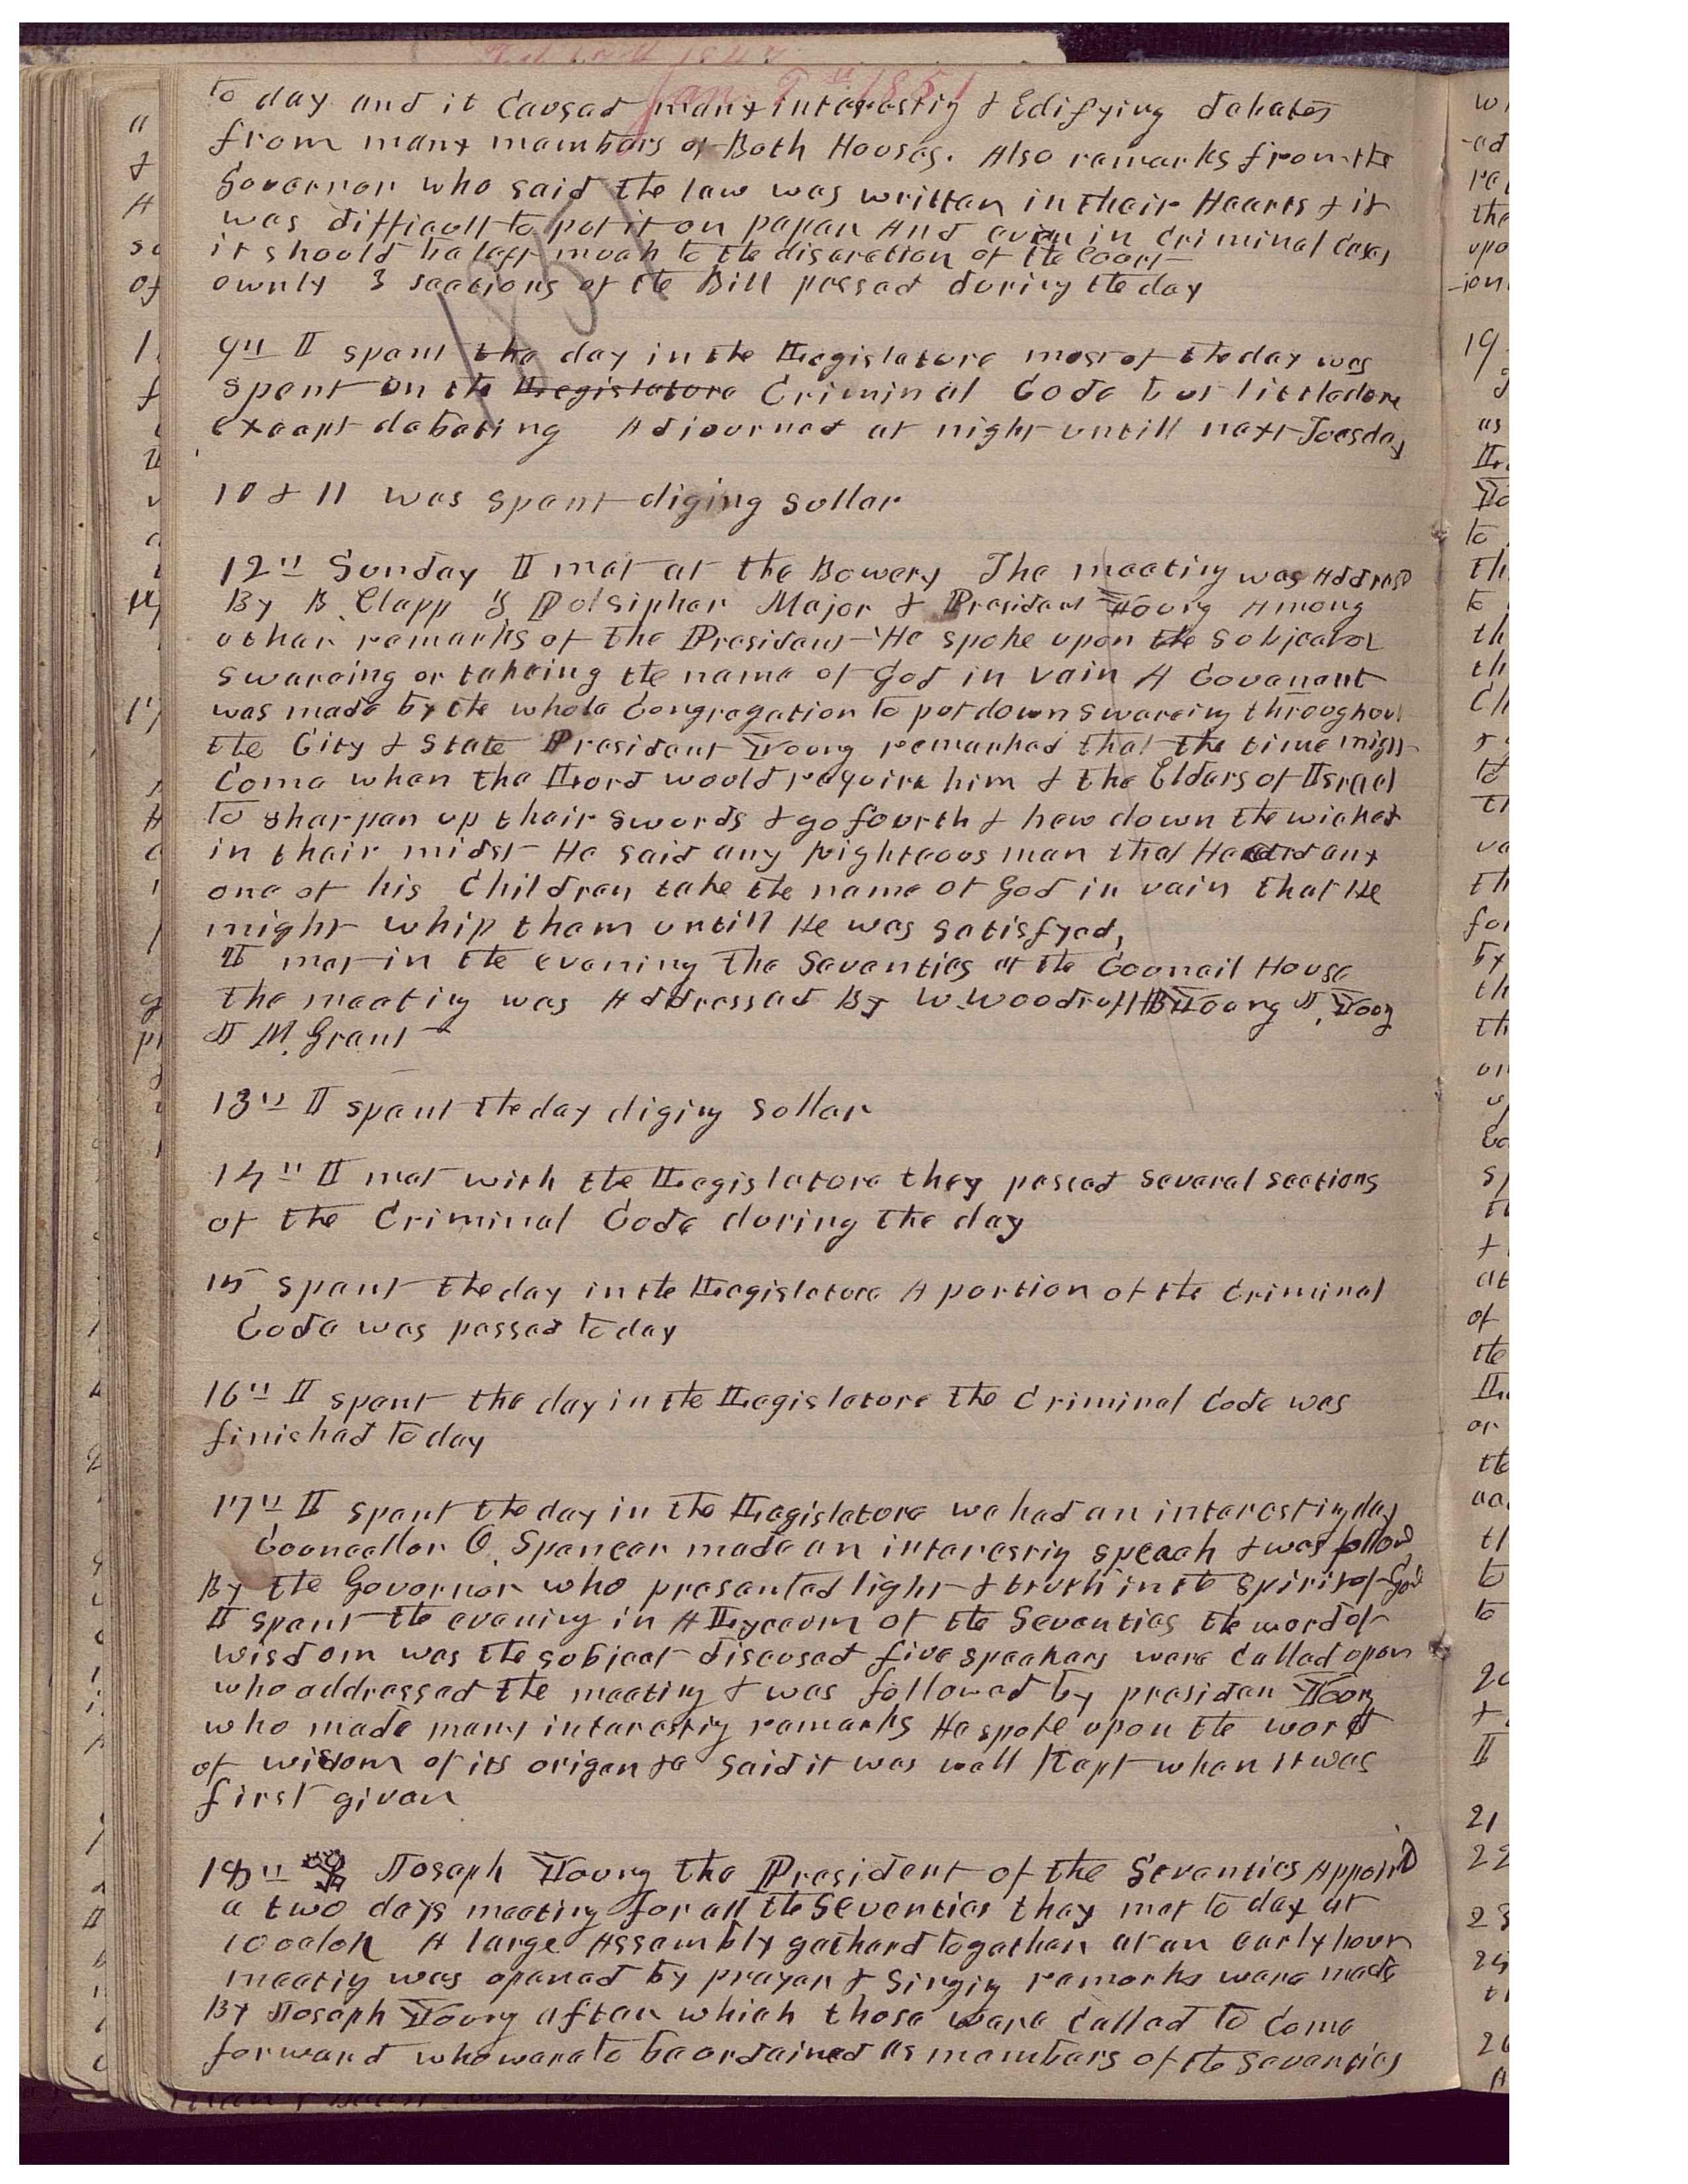 Jan. 8th 1851
1851
to day and it Caused many interestig & Edifying debates
from many members of Both Houses. Also remarks from the
Governor who said the law was written in their Hearts & it
was difficult to put it on paper And even in Criminal Cases
it should be left much to the discretion of the Court
ownly 3 sections of the Bill passed during the day
9th I spent the day in the Legislature most of the day was
spent on the Legislature Criminal Code but little done
except debating Adjourned at night untill next Tuesday
10 & 11 was spent diging sullar
12th Sunday I met at the Bowery The meetiig was Addresd
By B. Clapp Pulsipher Major & President Young Among
other remarks of the President He spoke upon the subject of
swareing or takeing the name of God in vain A Covenant
was made by the whole Congregation to put down swareing throughout
the City & State President Young remarked that the time might
Come when the Lord would require him & the Elders of Israel
to sharpen up their swords & go fourth & hew down the wicked
in their midst He said any righteous man that Heard any
one of his Children take the name of God in vain that He
might whip them untill He was satisfyed,
I met in the evening the Seventies at the Council House
the meeting was Addressed By W. Woodruff B Young J. Young
J M. Grant
13th I spent the day digig sullar
14th I met with the Legislature they passed several sections
of the Criminal Code during the day
15 spent the day in the Legislature A portion of the Criminal
Code was passed to day
16th I spent the day in the Legislature the Criminal Code was
finished to day
17th I spent the day in the Legislature we had an interestig day
Councellor O. Spencer made an interestig speech & was followd
By the Governor who presented light & truth in the spirit of God
I spent the evening in A Lyceum of the Seventies the word of
wisdom was the subject discused five speakers were Called upon
who addressed the meeting & was followed by presiden Young
who made many interestig remarks He spoke upon the word
of wisdom of its origen &c said it was well kept when it was
first given
18th Joseph Young the President of the Seventies Appointd
a two days meeting for all the Seventies they met to day at
10 oclok A large Assembly gatherd together at an early hour
meetig was opened by prayer & Singig remarks were made
By Joseph Young after which those were Called to Come
forward who were to be ordained as members of the Seventies